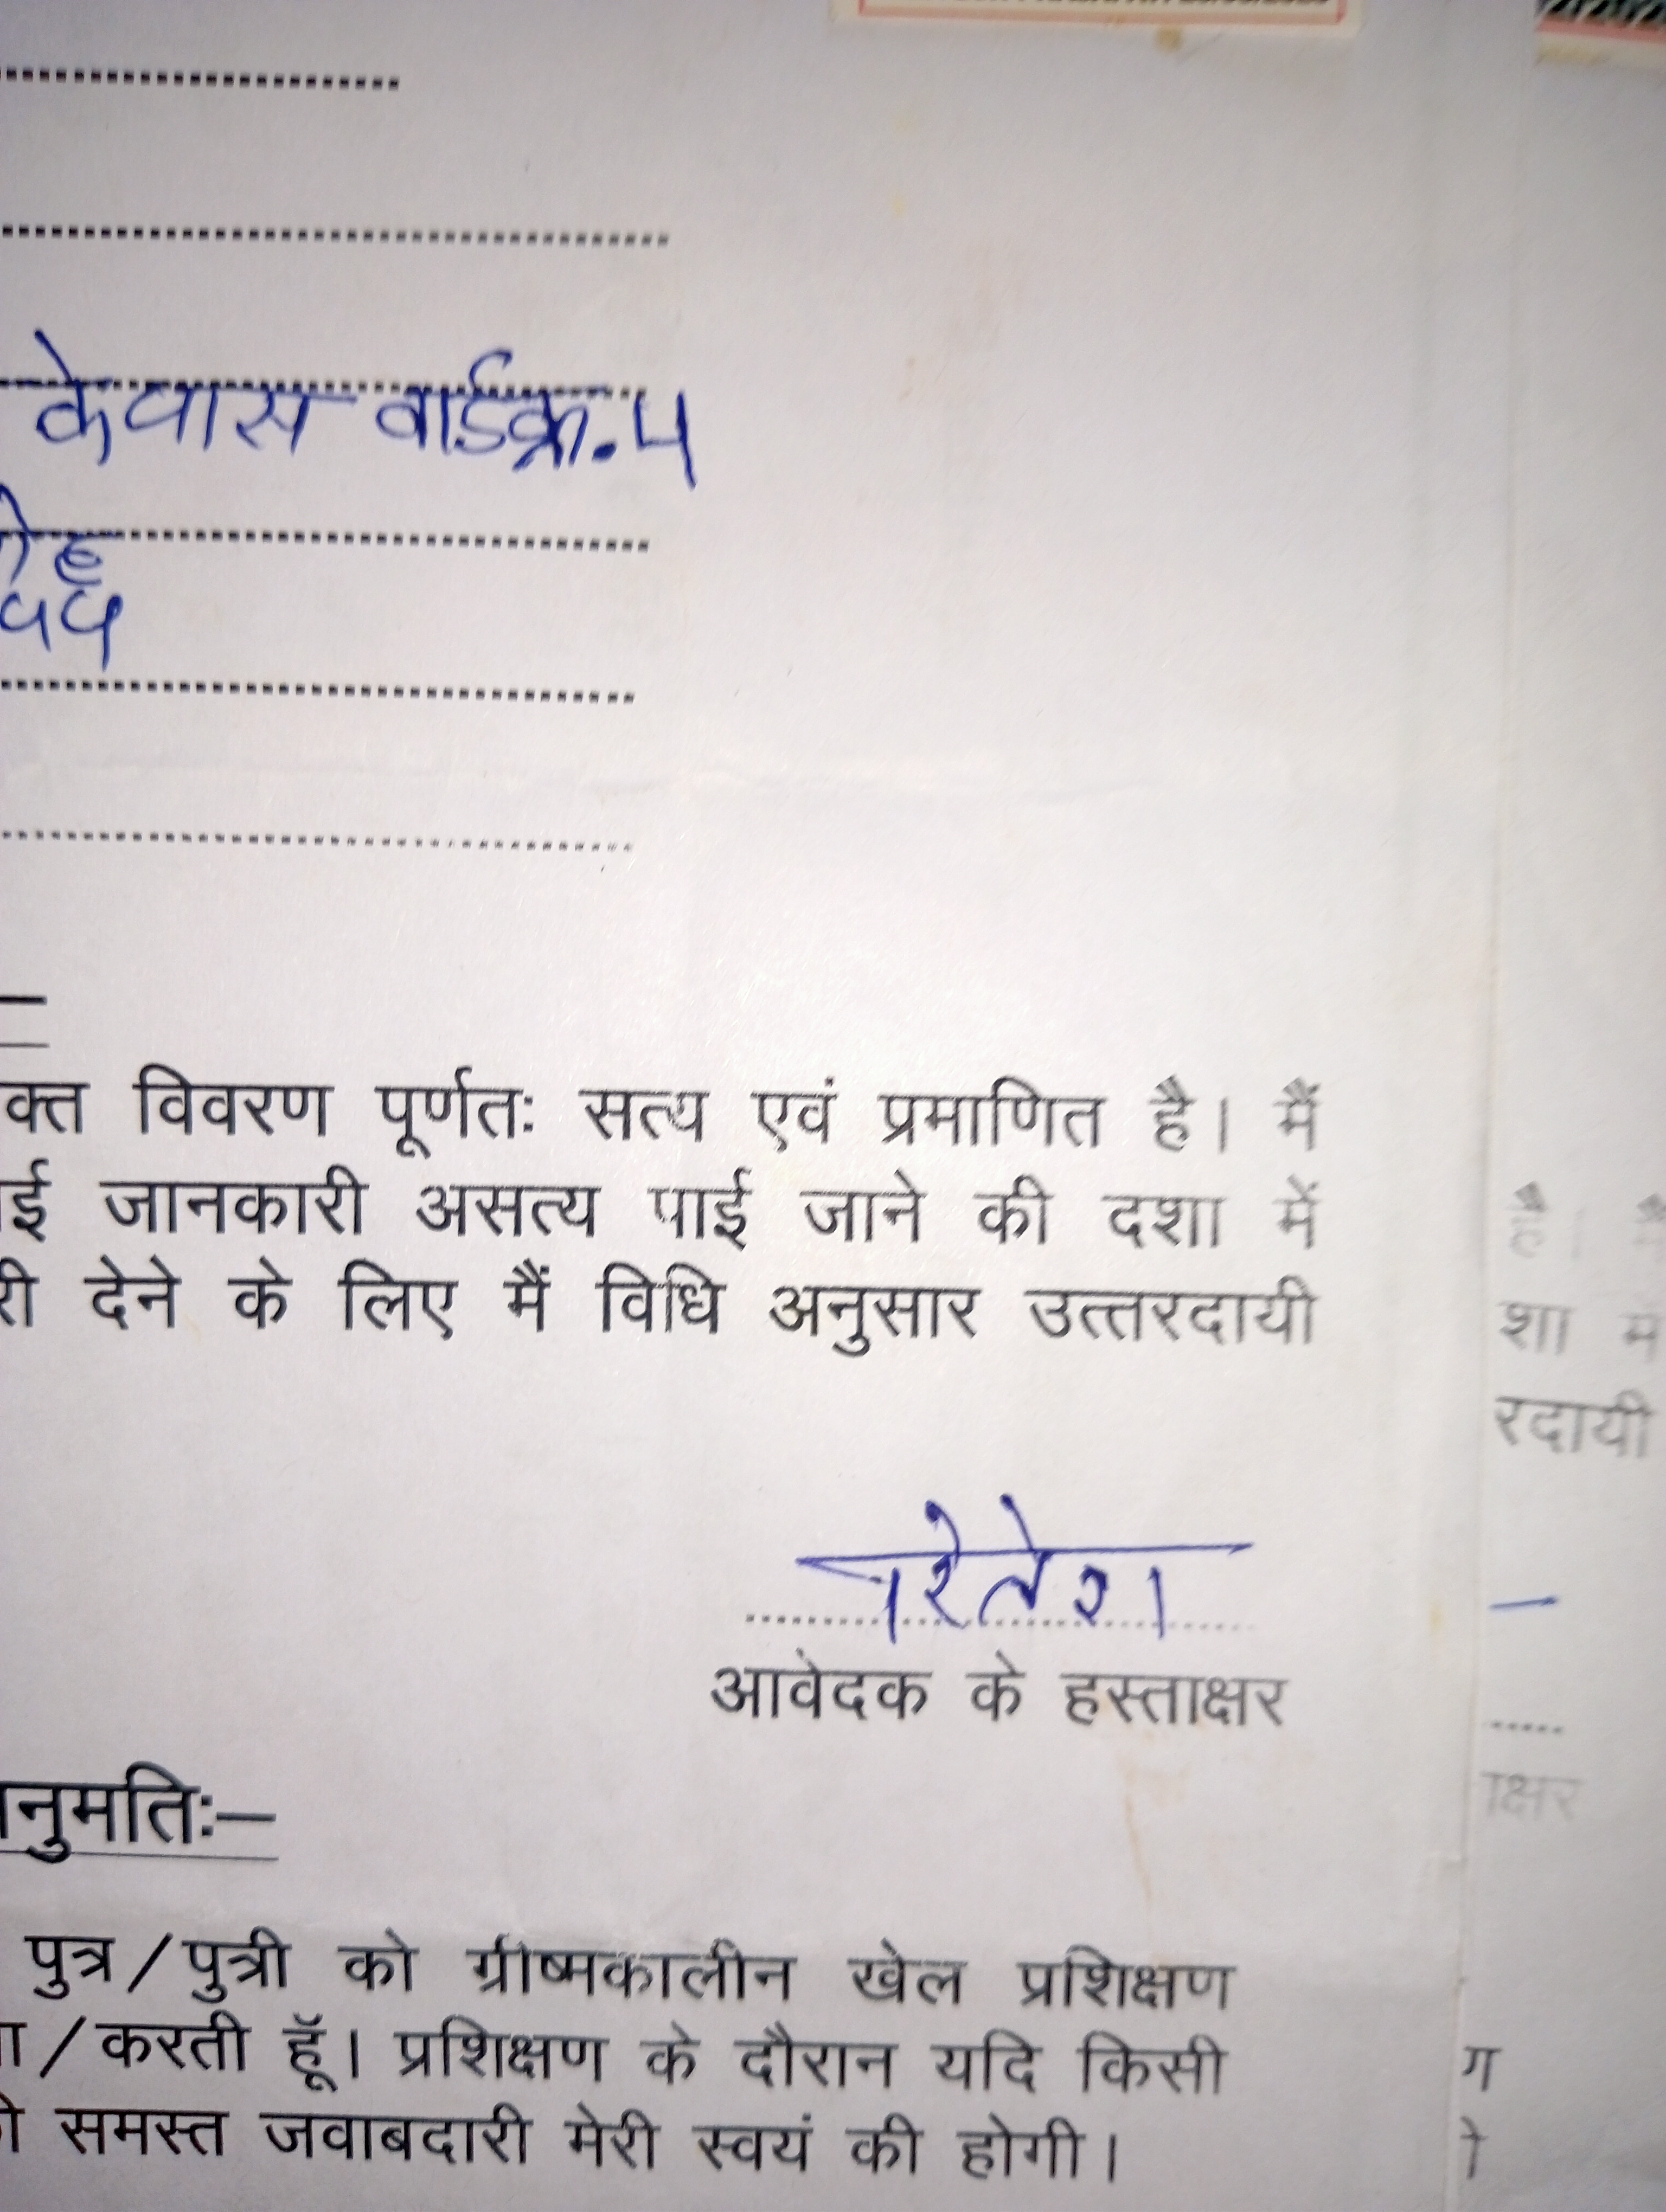 के पास वार्ड क्र. 4
क्त विवरण पूर्णतः सत्य एवं प्रमाणित है। मैं
ाई जानकारी असत्य पाई जाने की दशा में
री देने के लिए मैं विधि अनुसार उत्तरदायी
आवेदक के हस्ताक्षर
नुमतिः–
पुत्र/पुत्री को ग्रीष्मकालीन खेल प्रशिक्षण
ा/करती हूॅं। प्रशिक्षण के दौरान यदि किसी
ी समस्त जवाबदारी मेरी स्वयं की होगी।
शा में
रदायी
ाक्षर